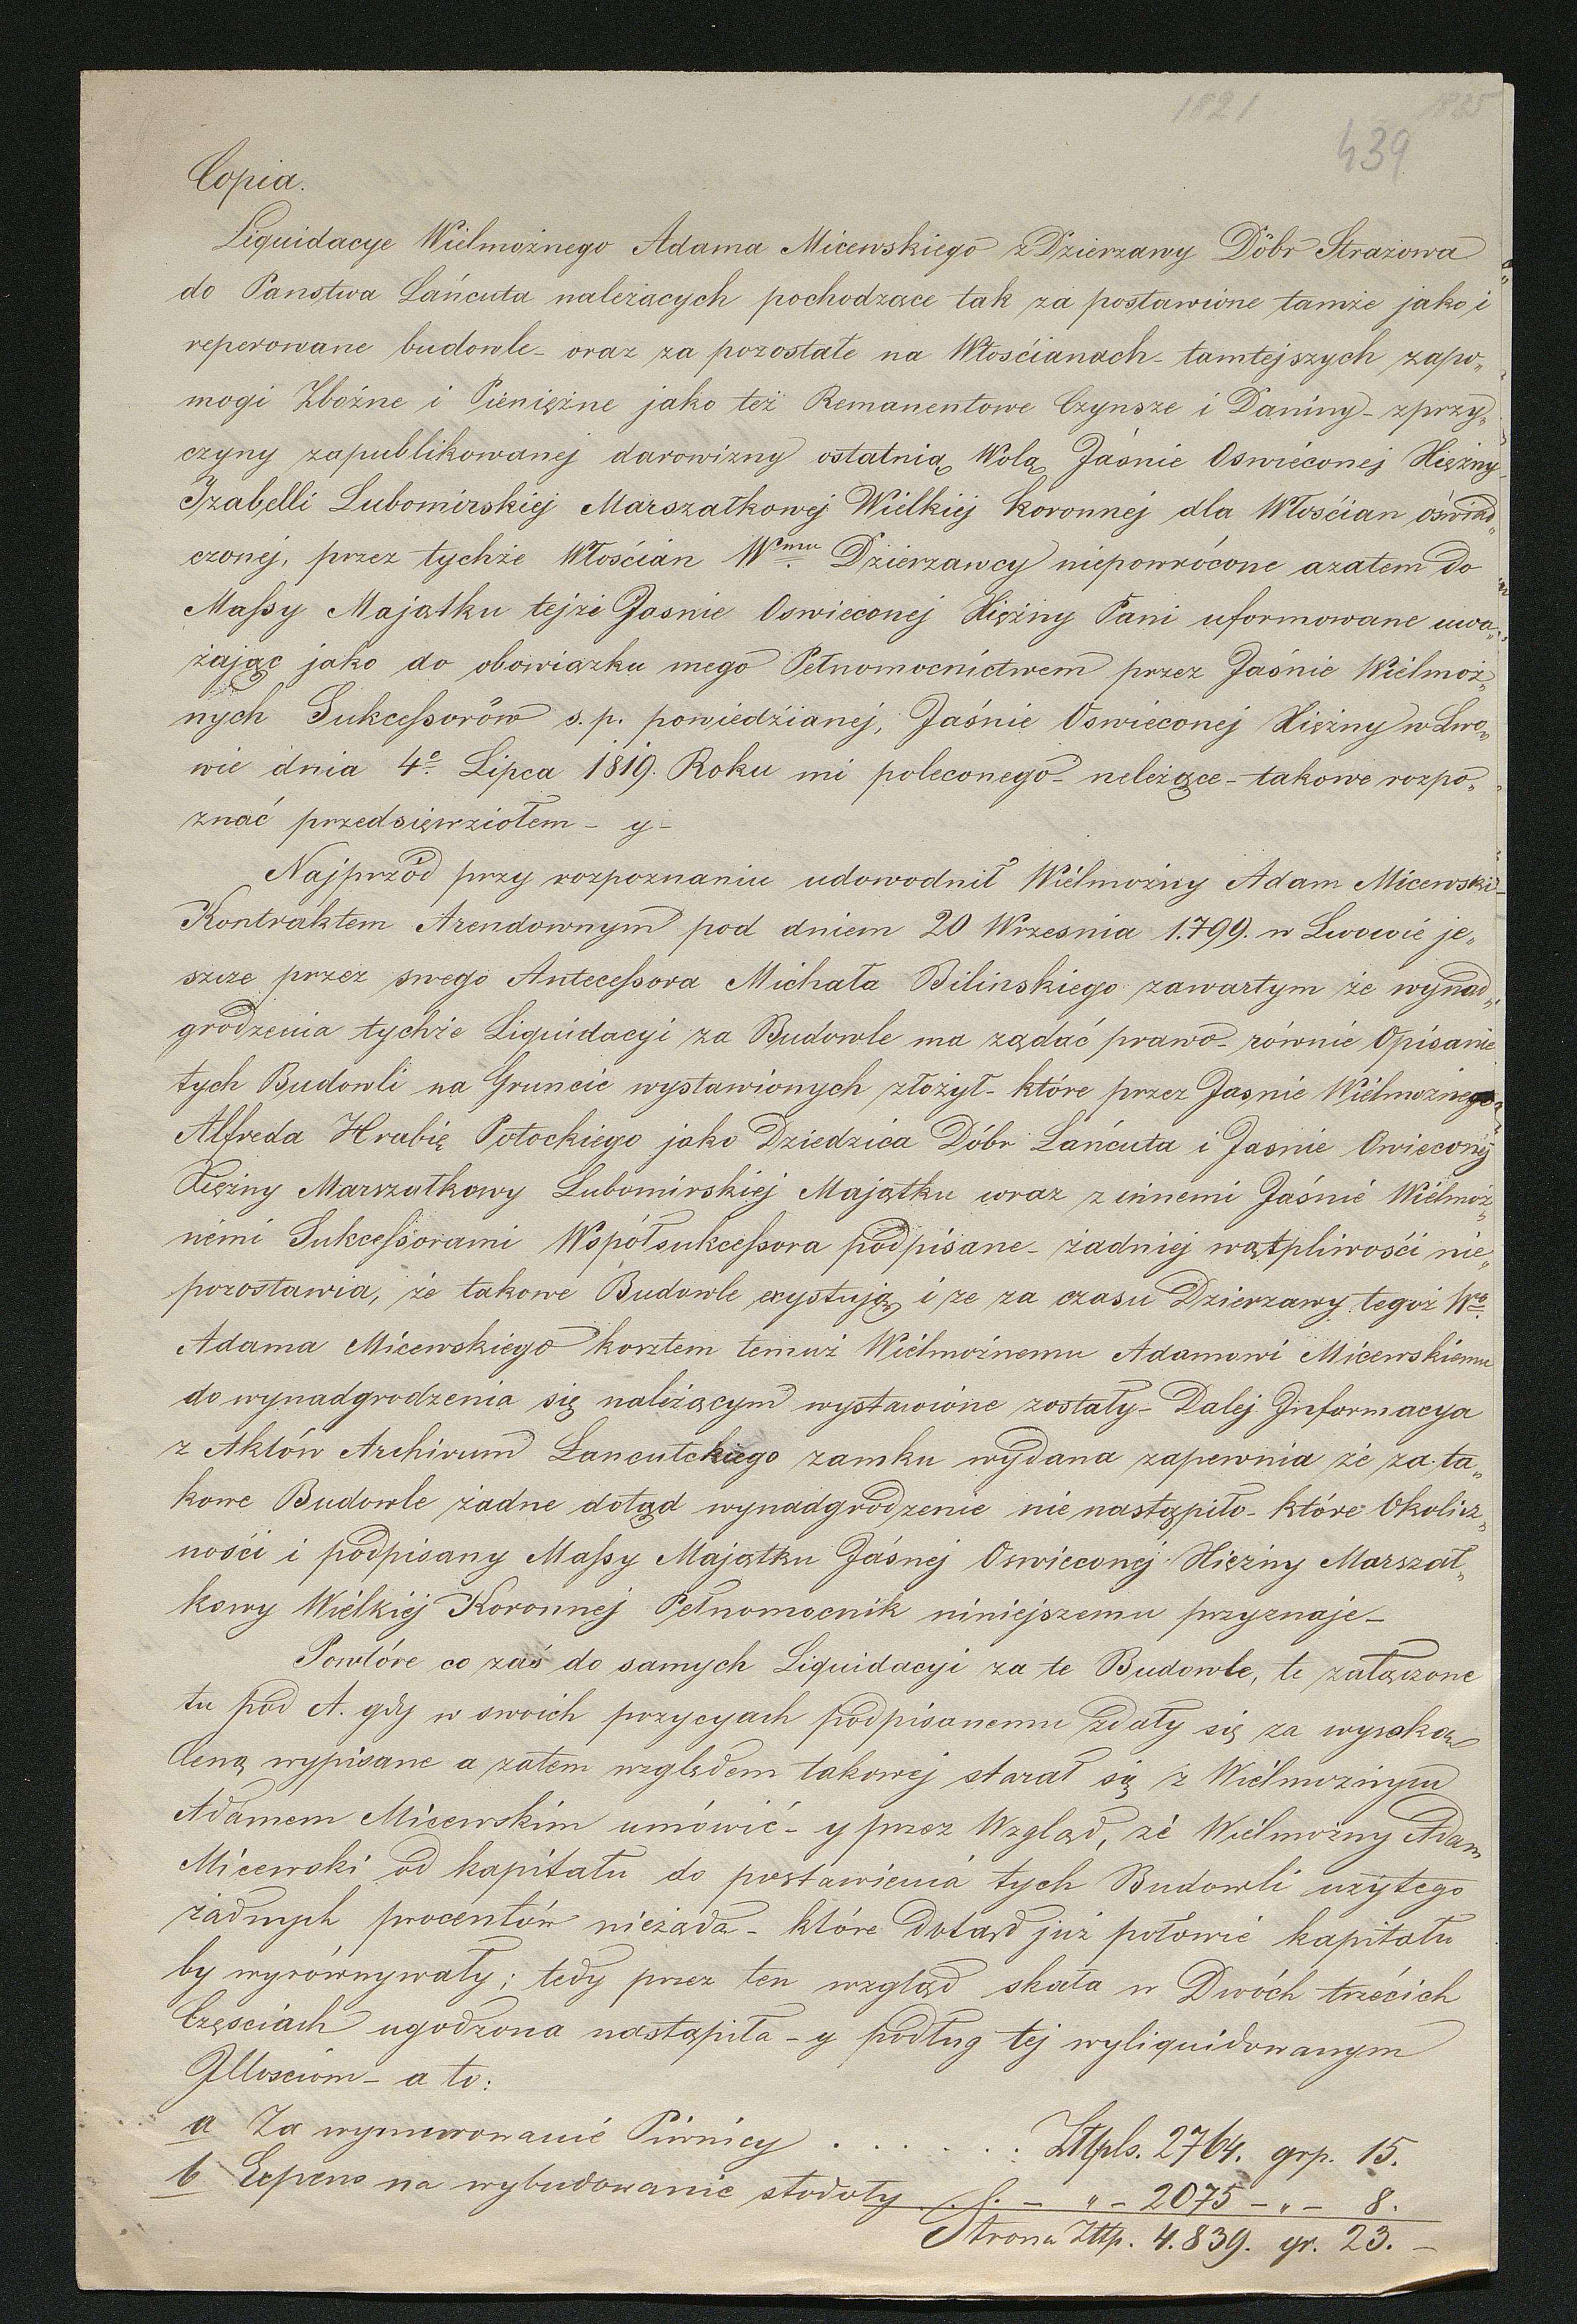 1821 1835
439
Copia.
Liquidacye Wielmożnego Adama Micewskiego z Dzierzawy Dóbr Strazowa
do Panstwa Łańcuta należących pochodzące tak za postawione tamże jako i
reperowane budowle - oraz za pozostałe na Włościanach - tamtejszych zapo„
mogi Zbożne i Pieniężne jako też Remanentowe Czynsze i Daniny - zprzy„
czyny zapublikowanej darowizny ostatnią Wolą Jaśnie Oswieconej Xiężny
Izabelli Lubomirskiej Marszałkowej Wielkiej Koronnej dla Włościan oświad„
czonej, przez tychże Włościan Wmu Dzierzawcy niepowrócone azatem do
Massy Majątku tejże Jasnie Oswieconej Xiężny Pani uformowane uwa„
żając jako do obowiązku mego Pełnomocnictwem przez Jaśnie Wielmoż„
nych Sukcessorów s.p. powiedzianej, Jaśnie Oswieconej Xiężny w Lwo„
wie dnia 4o Lipca 1819. Roku mi poleconego - neleżące - takowe rozpo„
znać przedsięwziołem - y -
Najprzód przy rozpoznaniu udowodnił Wielmożny Adam Micewski -
Kontraktem Arendownym pod dniem 20 Wrzesnia 1.799. w Lwowie je„
szcze przez swego Antecessora Michała Bilinskiego zawartym że wynad„
grodzenia tychże Liquidacyi za Budowle ma ządać prawo - równie Opisanie
tych Budowli na Gruncie wystawionych złożył - które przez Jasnie Wielmożnego
Alfreda Hrabię Potockiego jako Dziedzica Dóbr Łańcuta i Jasnie Owieconej
Xiężny Marszałkowy Lubomirskiej Majątku wraz z innemi Jaśnie Wielmoż„
nemi Sukcessorami Współsukcessora podpisane - żadniej wątpliwości nie„
pozostawia, że takowe Budowle exystują i ze za czasu Dzierzawy tegoż Wo
Adama Micewskiego kosztem temuż Wielmożnemu Adamowi Micewskiemu
do wynadgrodzenia się należącym wystawione zostały - Dalej Informacya
z Aktów Archiwum Lancutckiego zamku wydana zapewnia że za ta„
kowe Budowle żadne dotąd wynadgrodzenie nie nastąpiło - które Okolicz„
ności i podpisany Massy Majątku Jáśnej Oswieconej Xiężny Marszał„
kowy Wielkiej Koronnej Pełnomocnik niniejszemu przyznaje -
Powtóre co zaś do samych Liquidacyi za te Budowle, te załączone
tu pod A. gdy w swoich pozycyach podpisanemu zdały się za wysoką
Ceną wypisane a zatem względem takowej starał się z Wielmoznym
Adamem Micewskim umówić - y przez Wzgląd, że Wielmożny Adam
Micewski od kapitału do postawienia tych Budowli użytego
żadnych procentów nieżąda - które dotąd już połowie kapitału
by wyrównywały; tedy przez ten wzgląd skala w Dwóch trzecich
Częsciach ugodzona nastąpiła - y podług tej wyliquidowanym
Illosciom - a to:
a Za wymurowanie Piwnicy . . . . . . Złtpls. 2764. grp. 15.
b Expens na wybudowanie stodoły . . . - „ - 2075 - „ - 8.
Strona Złtp. 4.839. gr. 23. -